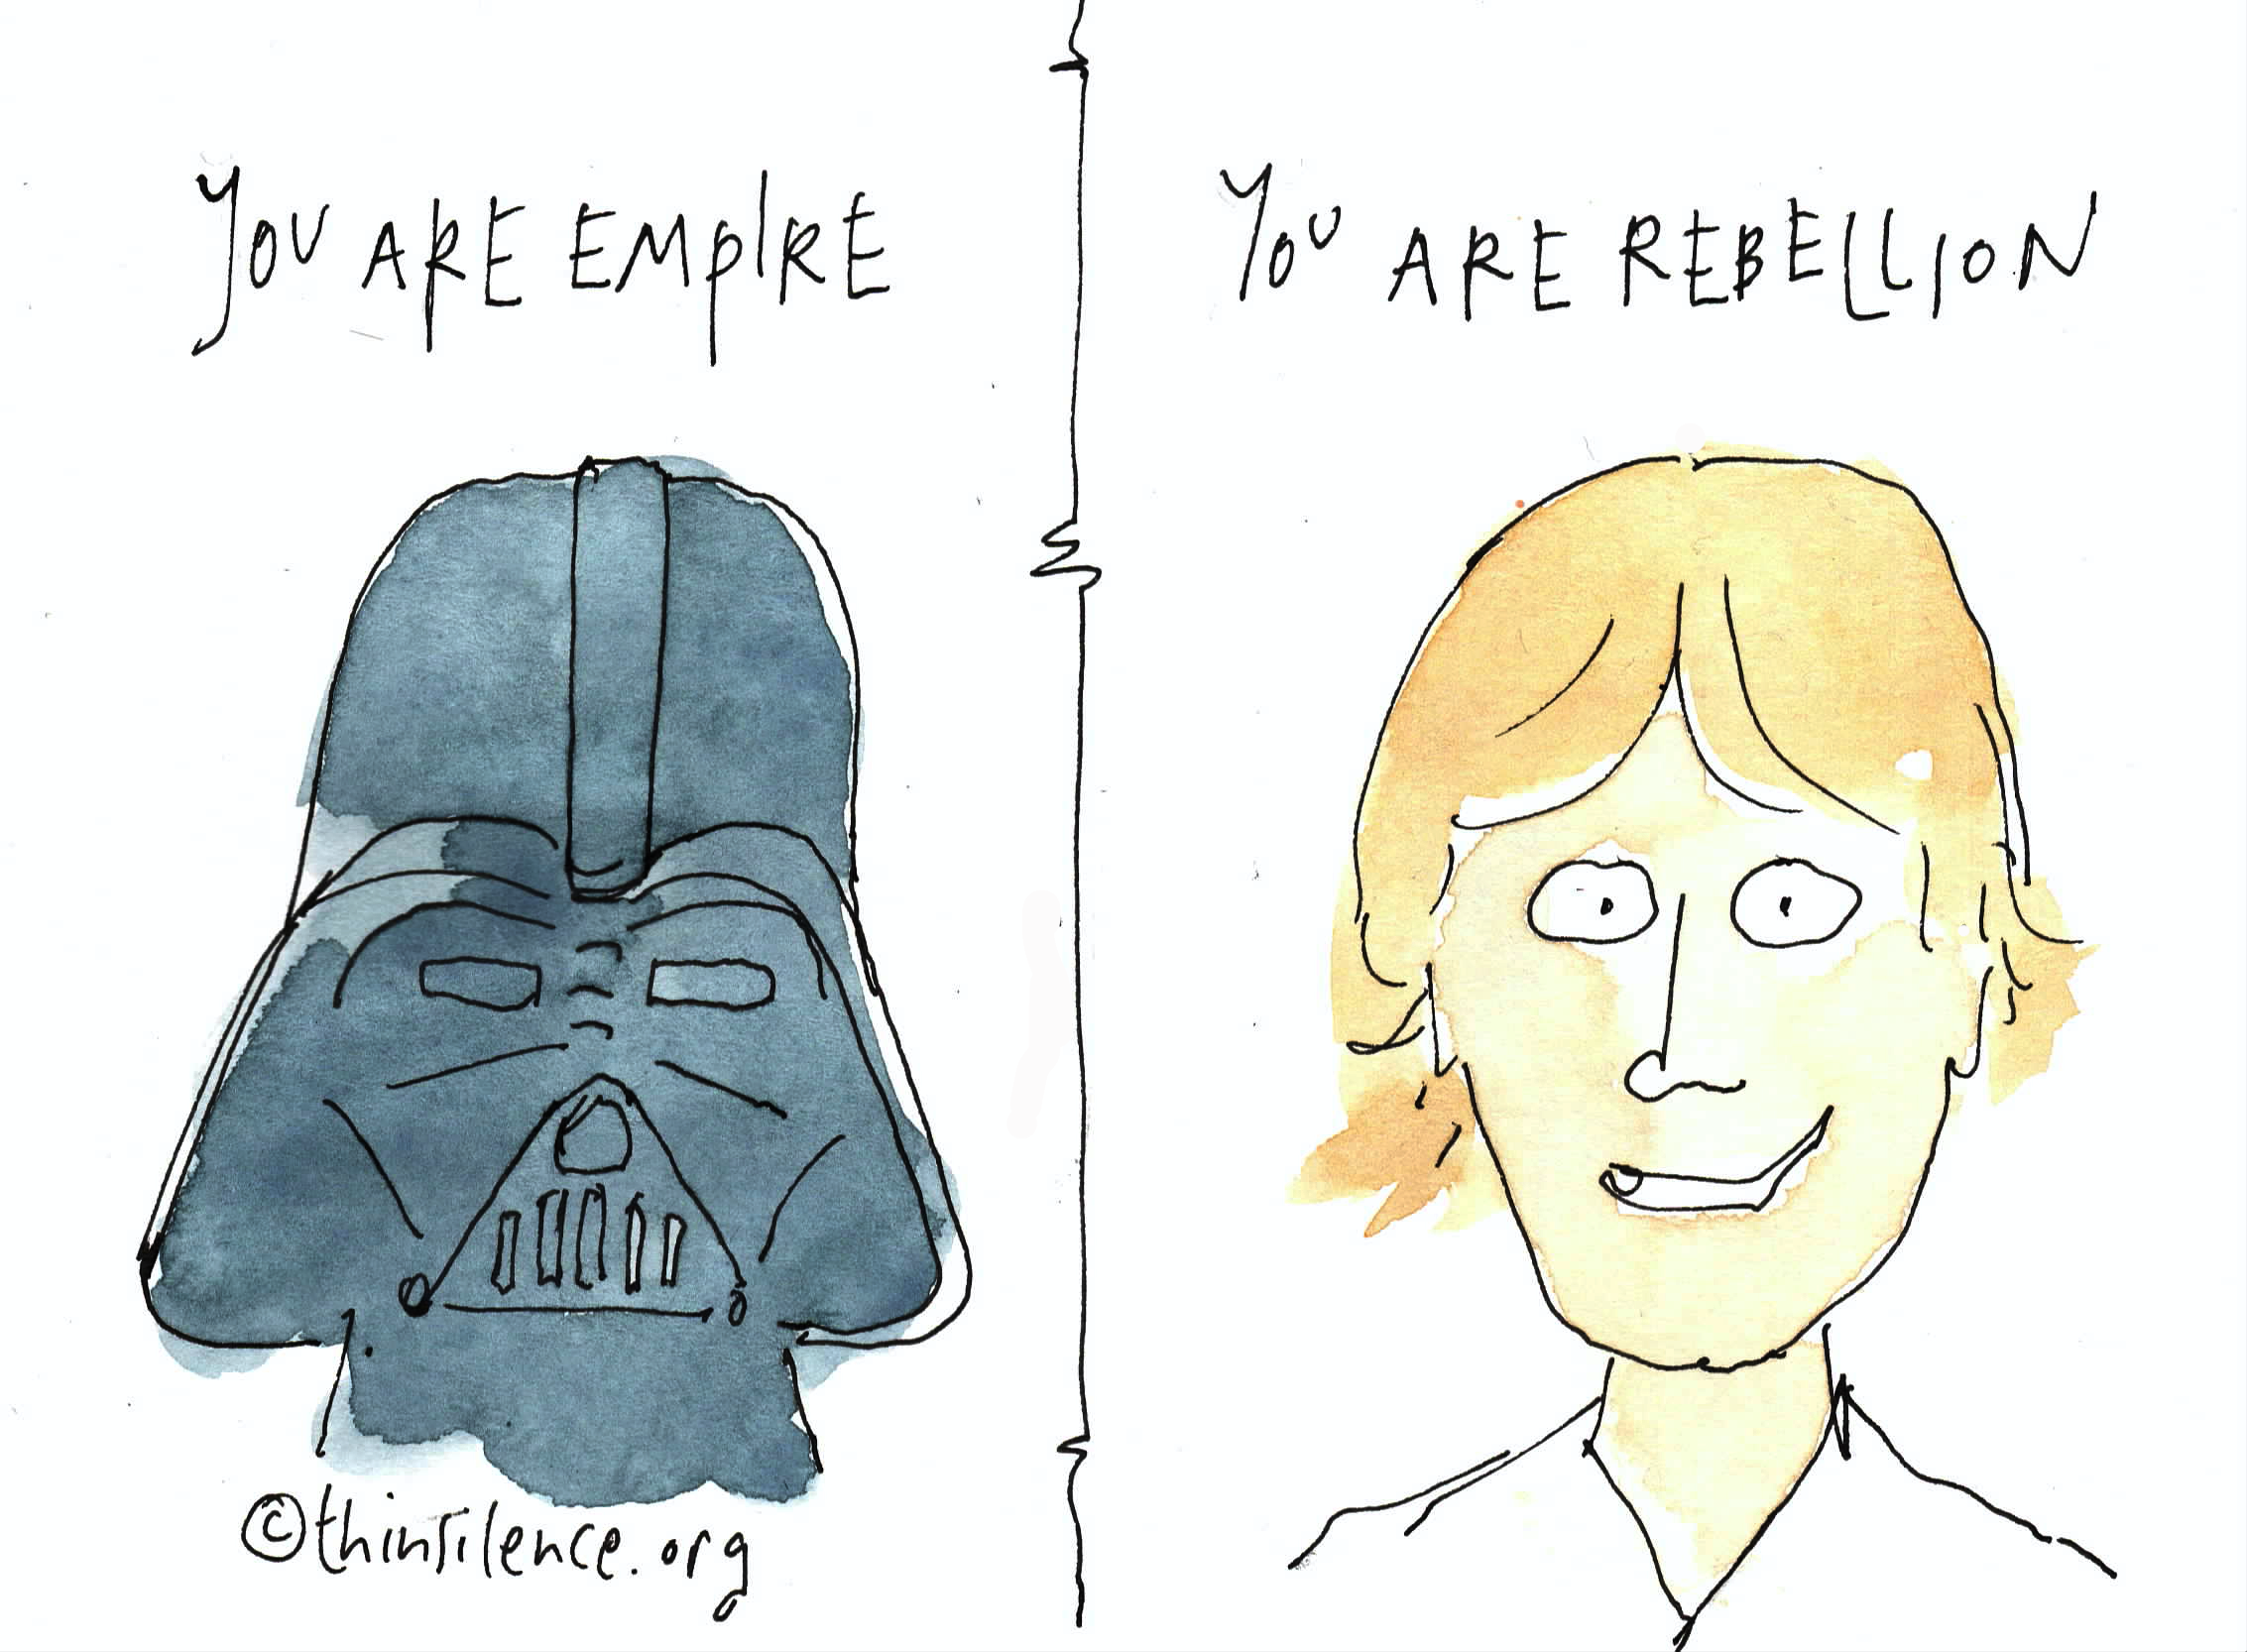 YOU ARE EMPIRE
YOU ARE REBELLION
©thinsilence.org